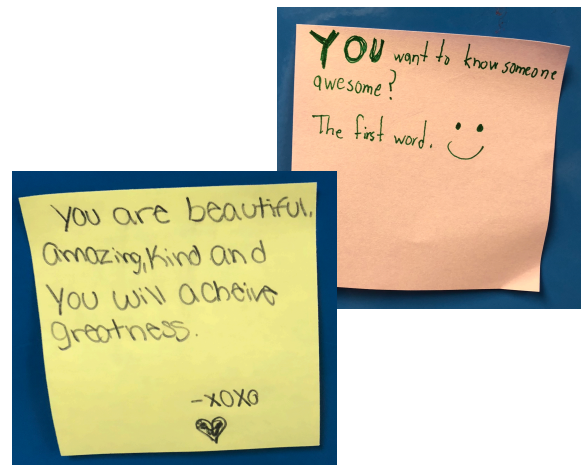 YOU want to know someone
awesome?
The first word.
you are beautiful,
amazing, kind and
you will acheive
greatness.
-xoxo